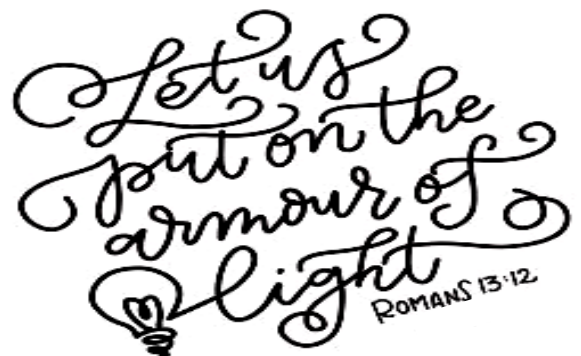 Let us
put on the
armour of
light
ROMANS 13:12